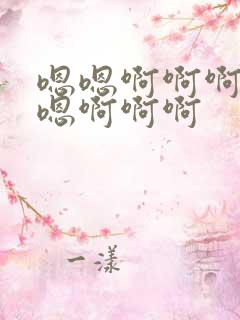 嗯嗯啊啊啊
嗯啊啊啊
一漾